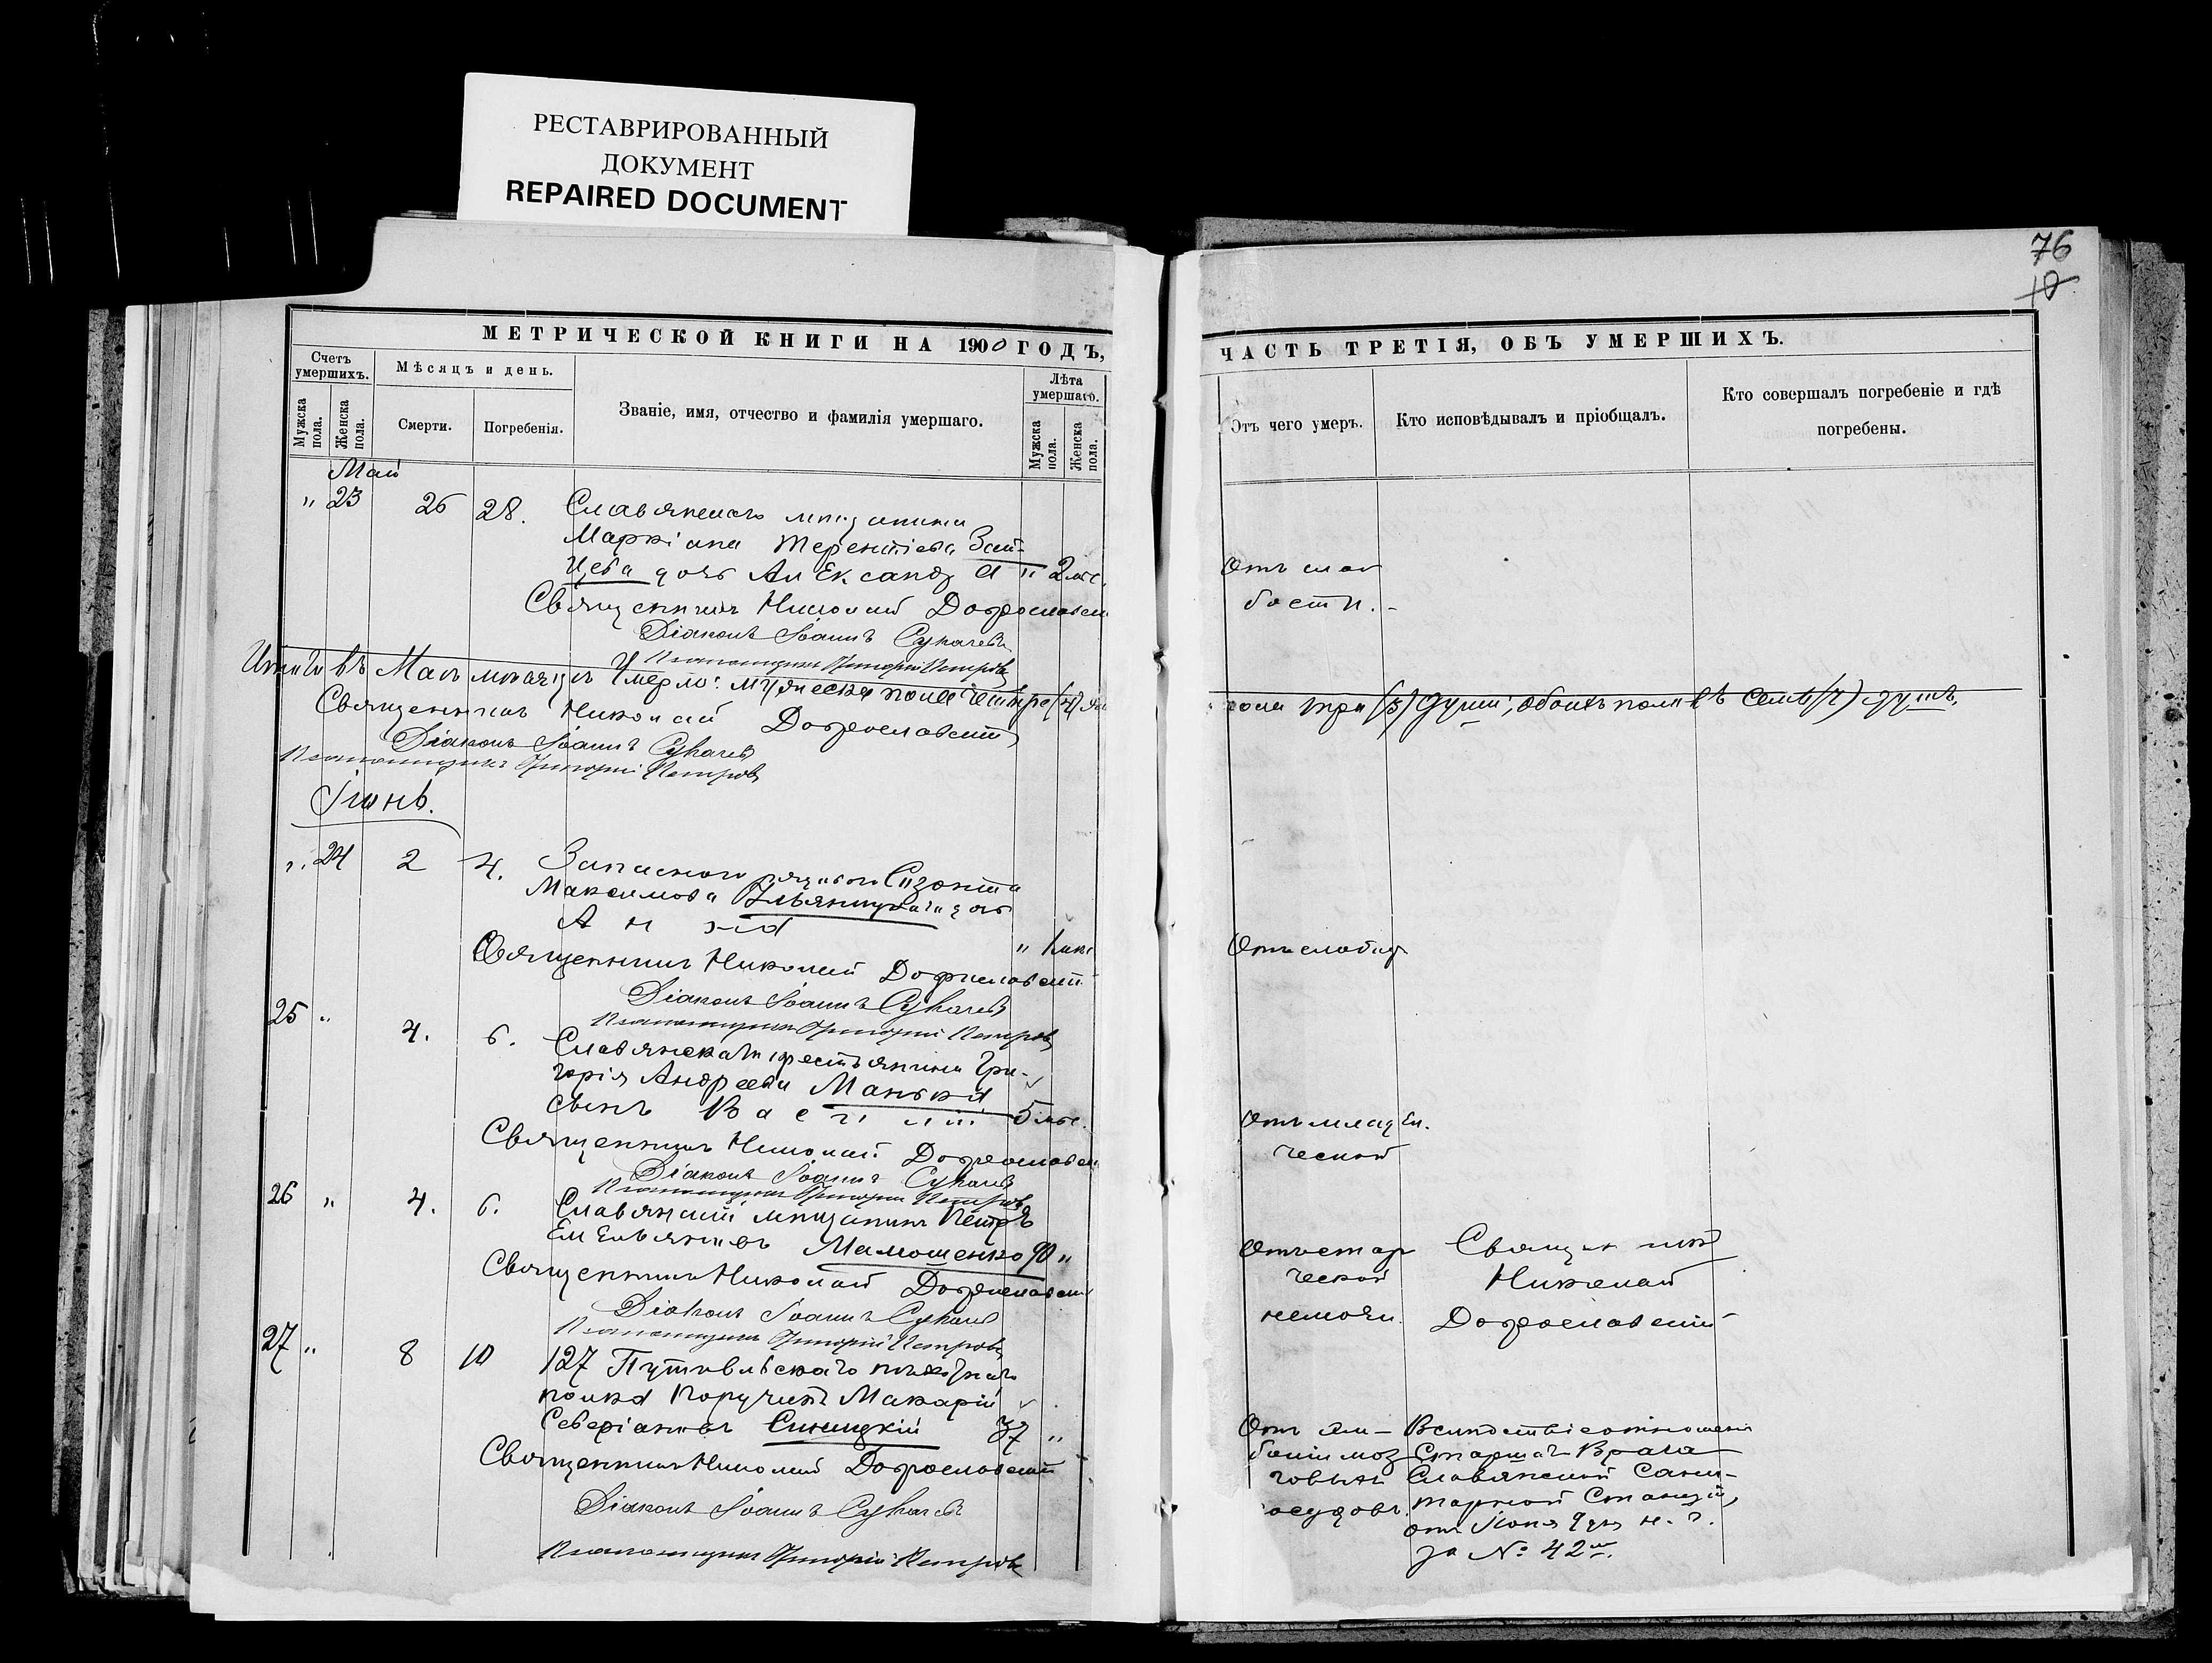 РЕСТАВРИРОВАННЫЙ
ДОКУМЕНТ
REPAIRED DOCUMENT
76
10
МЕТРИЧЕСКОЙ КНИГИ НА 1900 ГОДЪ,
Счетъ умершихъ.
Мужска пола.
Женска пола.
Мѣсяцъ и день.
Смерти.
Погребенія.
Званіе, имя, отчество и фамилія умершаго.
Лѣта умершаго.
Мужска пола.
Женска пола.
Май
" 23 26 28. Славянскаго мѣщанина
Маркіана Терентіева Зай-
цева дочь Александра " 2 мѣс.
Священникъ Николай Доброславскі
Діаконъ Іоаннъ Сукачевъ
Псаломщикъ Григорій Петровъ
Итого въ Маѣ мѣсяцѣ умерло: мужеска пола четыре (4)
Священникъ Николай Доброславскій
Діаконъ Іоаннъ Сукачевъ
Псаломщикъ Григорій Петровъ
Іюнь.
". 24 2 4. Запаснаго рядового Созонта
Максимова дочь
Анна
" 1
Священникъ Николай Доброславскій
Діаконъ Іоаннъ Сукачевъ
Псаломщикъ Григорій Петровъ
25 " 4. 6. Славянскаго крестьянина Гри-
горія Андреева Манька
сынъ Василій 5 мѣс.
Священникъ Николай Доброславскі
Діаконъ Іоаннъ Сукачевъ
Псаломщикъ Григорій Петровъ
26 " 4. 6. Славянскій мѣщанинъ Петръ
Емельяновъ Мамошенко 90 "
Священникъ Николай Доброславскі
Діаконъ Іоаннъ Сукачевъ
Псаломщикъ Григорій Петровъ
27 " 8 10 127 Путивльскаго пѣхотнаго
полка Поручикъ Макарій
Северіановъ Синицкій 37 "
Священникъ Николай Доброславскій
Діаконъ Іоаннъ Сукачевъ
Псаломщикъ Григорій Петровъ
ЧАСТЬ ТРЕТІЯ, ОБЪ УМЕРШИХЪ.
Отъ чего умеръ.
Кто исповѣдывалъ и пріобщалъ.
Кто совершалъ погребеніе и гдѣ
погребены.
Отъ сла
бости.-
пола три (3) души, обоихъ половъ семь (7) душъ.
Отъ слабос
Отъ младен.
ческой
Отъ стар
ческой
немочи.
Священникъ
Николай
Доброславскій
Отъ эм-
боліи моз
говыхъ
сосудовъ.
Вслѣдствіе отношенія
Старшаго Врача
Славянской Сани-
тарной Станціи,
отъ Іюня 9 дня н. г.
за № 42м.